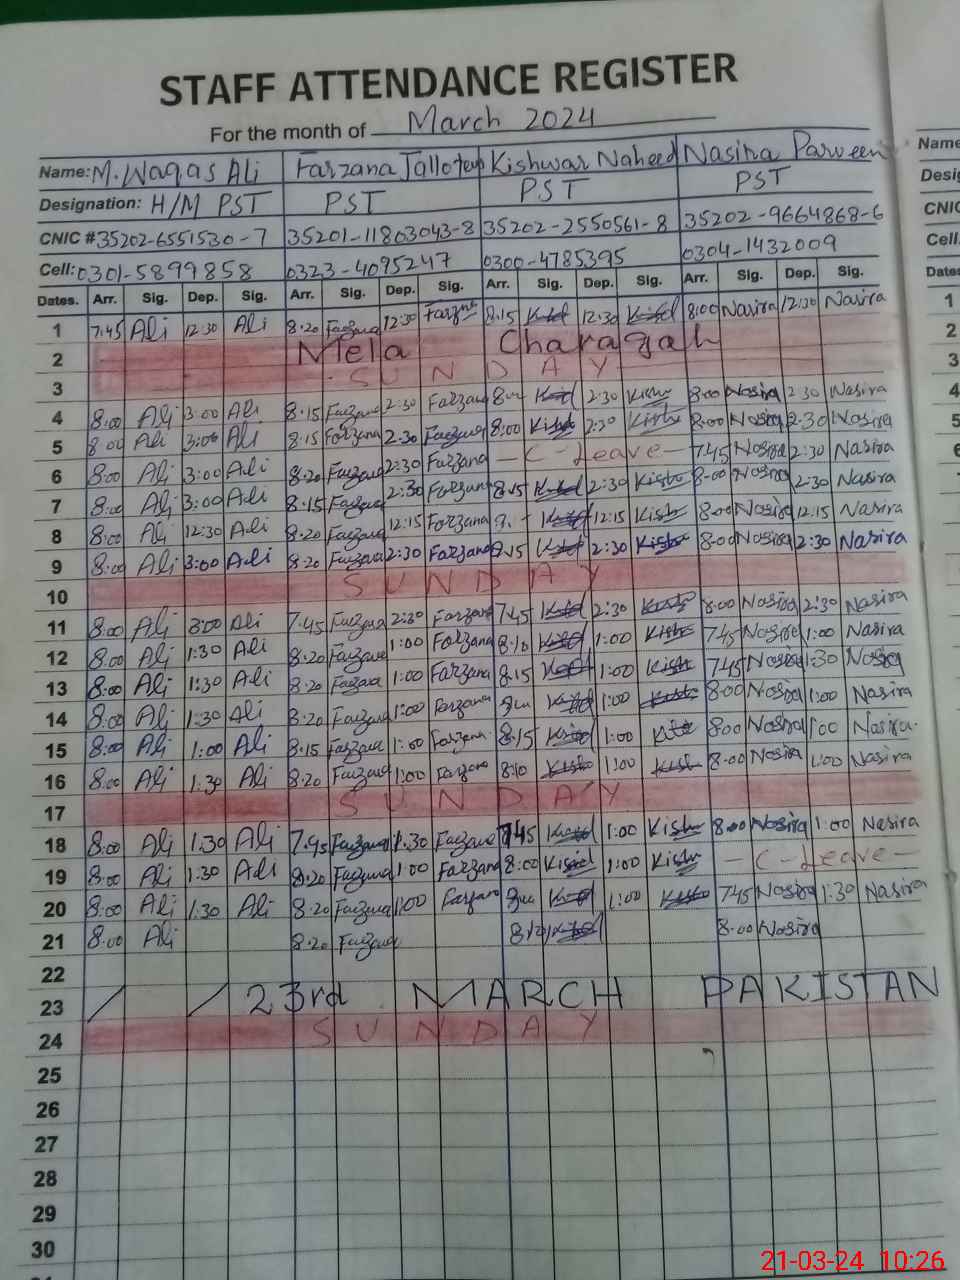 STAFF ATTENDANCE REGISTER
For the month of March 2024
Name: M. Waqas Ali Farzana Kishwar Naheed Nasira Parveen Name
Designation: H/M PST PST PST PST
CNIC # 35202-6551530-7 35201-11803043-8 35202-2550561-8 35202-9664868-6 CNIC
Cell: 0301-5899858 0323-4095247 0300-4785395 0304-1432009 Cell.
Dates. Arr. Sig. Dep. Sig. Arr. Sig. Dep. Sig. Arr. Sig. Dep. Sig. Arr. Sig. Dep. Sig. Dates
1 7.45 Ali 12:30 Ali 8.20 Farzana 12:30 Farzana 8.15 12:30 8:00 Nasira 12:30 Nasira 1
2 Mela Charagah 2
3 SUNDAY 3
4 8.00 Ali 3:00 Ali 8.15 Farzana 2:30 Farzana 2:30 Kishw 8.00 Nasira 2:30 Nasira 4
5 8.00 Ali 3:00 Ali 8.15 Farzana 2:30 Farzana 8:00 2:30 8:00 Nasira 2:30 Nasira 5
6 8.00 Ali 3:00 Ali 8.20 Farzana 2:30 Farzana - C - Leave - 7.45 Nasira 2:30 Nasira 6
7 8.00 Ali 3:00 Ali 8.15 Farzana 2:30 Farzana 8.15 2:30 Kishw 8.00 Nasira 2:30 Nasira
8 8.00 Ali 12:30 Ali 8.20 Farzana 12:15 Farzana 12:15 Kishw 8.00 Nasira 12:15 Nasira
9 8.00 Ali 3:00 Ali 8.20 Farzana 2:30 Farzana 8.15 2:30 Kishw 8.00 Nasira 2:30 Nasira
10 SUNDAY
11 8.00 Ali 3:00 Ali 7.45 Farzana 2:30 Farzana 7.45 2:30 8.00 Nasira 2:30 Nasira
12 8.00 Ali 1:30 Ali 8.20 Farzana 1:00 Farzana 8.10 1:00 Kishw 7.45 Nasira 1:00 Nasira
13 8.00 Ali 1:30 Ali 8.20 Farzana 1:00 Farzana 8.15 1:00 Kishw 7.45 Nasira 1:30 Nasira
14 8.00 Ali 1:30 Ali 8.20 Farzana 1:00 Farzana 1:00 8.00 Nasira 1:00 Nasira
15 8.00 Ali 1:00 Ali 8.15 Farzana 1:00 Farzana 8.15 1:00 8.00 Nasira 1:00 Nasira
16 8.00 Ali 1:30 Ali 8.20 Farzana 1:00 Farzana 8.10 1:00 8.00 Nasira 1:00 Nasira
17 SUNDAY
18 8.00 Ali 1.30 Ali 7.45 Farzana 1.30 Farzana 7.45 1:00 Kishw 8.00 Nasira 1:00 Nasira
19 8.00 Ali 1:30 Ali 8.20 Farzana 1:00 Farzana 8:00 1:00 Kishw - C - Leave -
20 8.00 Ali 1:30 Ali 8.20 Farzana 1:00 Farzana 1:00 7.45 Nasira 1:30 Nasira
21 8.00 Ali 8.20 Farzana 8.10 8.00 Nasira
22
23 23rd MARCH PAKISTAN
24 SUNDAY
25
26
27
28
29
30
21-03-24 10:26